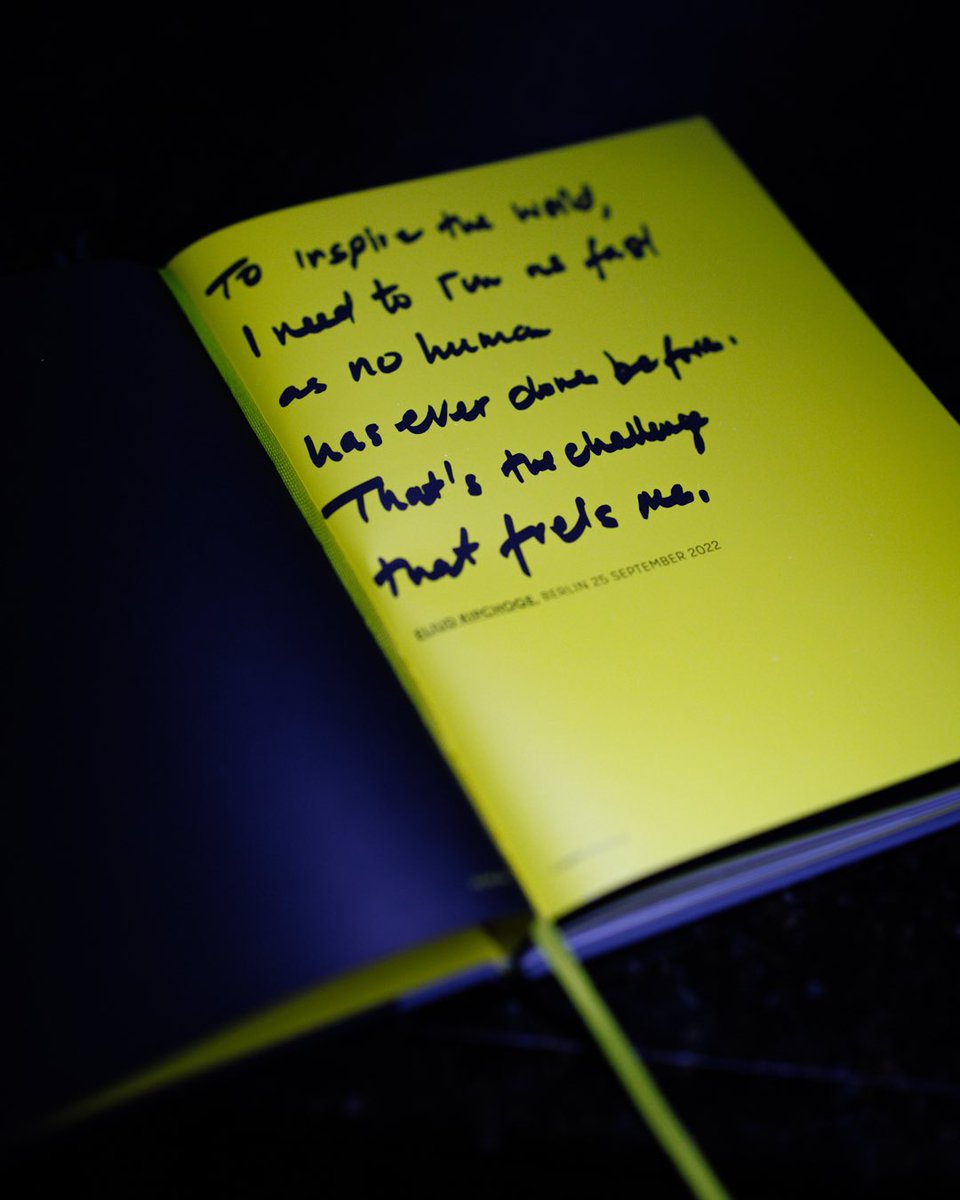 To inspire the world,
I need to run as fast
as no human
has ever done before.
That's the challenge
that fuels me.
ELIUD KIPCHOGE, BERLIN 25 SEPTEMBER 2022